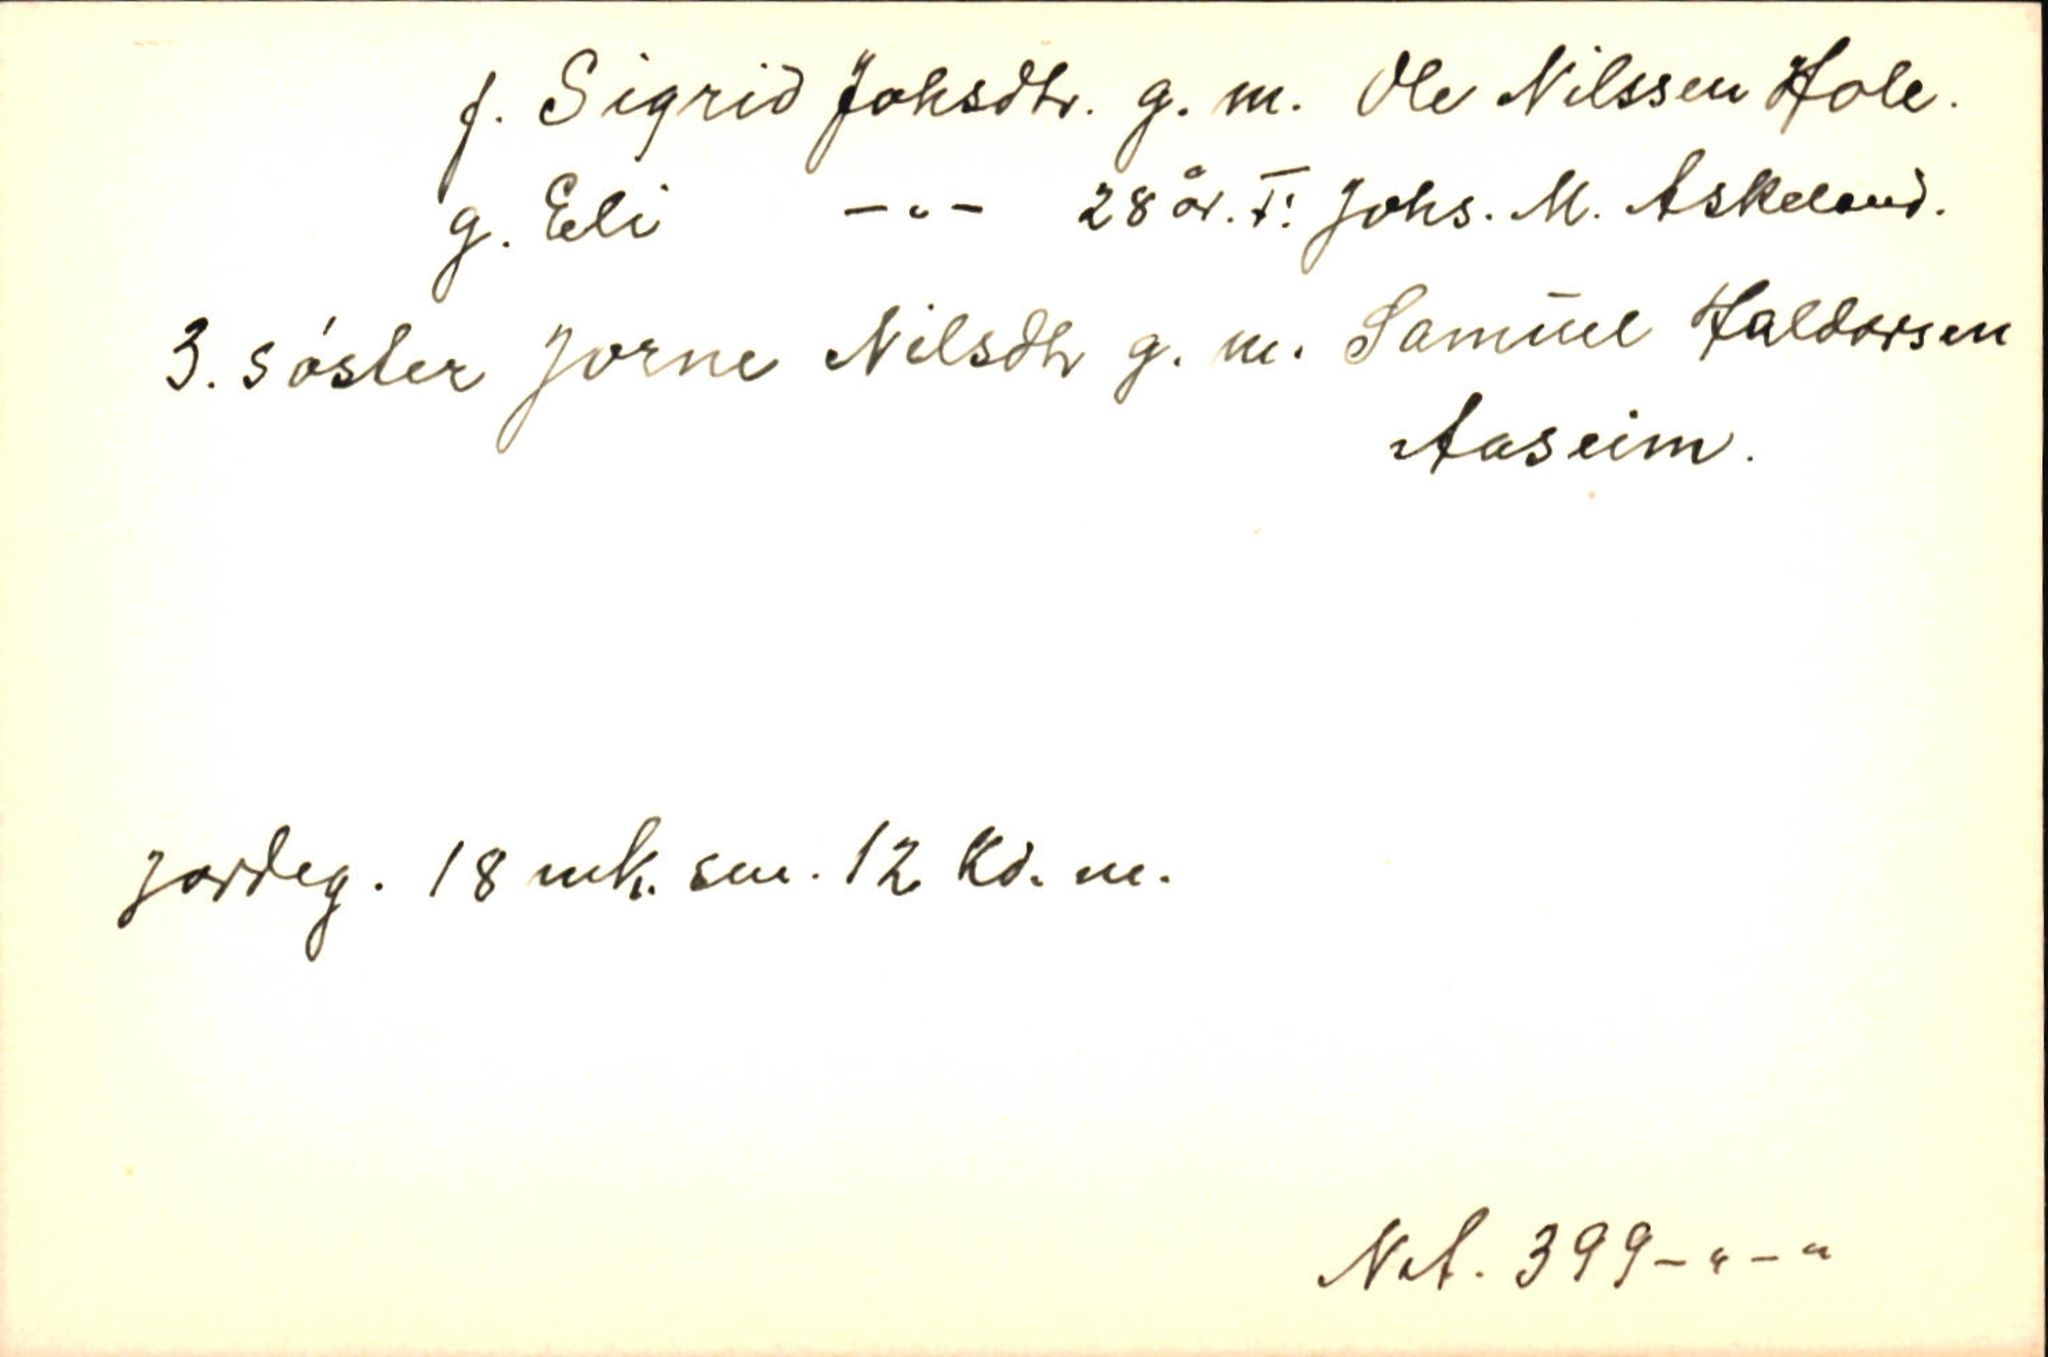 f. Sigrid Johsdtr. g. m. Ole Nilssen Hole.
g. Eli -"- 28 år. F: Johs. M. Askeland.
3. söster Jorne Nilsdtr g. m. Samūel Haldorsen
Aaseim.
jordeg. 18 mk. sm. 12 Kd. m.
N.A. 399-"-"